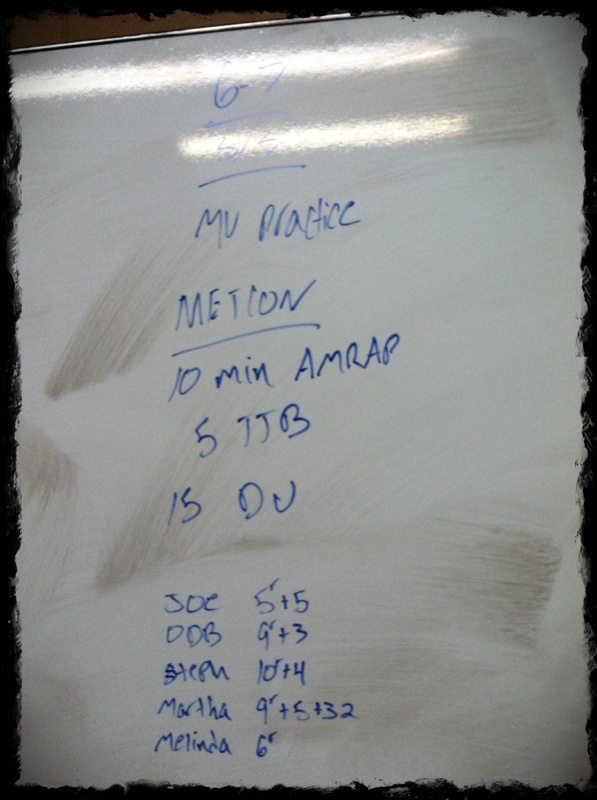 6-7
MU Practice
METCON
10 min AMRAP
5 TTB
15 DU
JOE 5r+5
ODB 9r+3
Steph 10r+4
Martha 9r+5+32
Melinda 6r